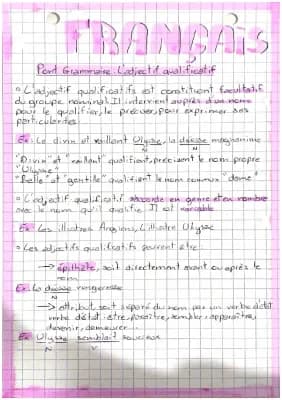 FRANÇAIS
Point Grammaire. L'adjectif qualificatif
• L'adjectif qualificatifs est constituant facultatif
du groupe nominal. Il intervient auprès d'un nom
pour le qualifier, le préciser, pour exprimer ses
particularités.
Ex: Le divin et vaillant Ulysse, la déesse magnanime
N N
"Divin" et "vaillant" qualifient, précisent le nom propre
"Ulysse".
"Belle" et "gentille" qualifient le nom commun "dame"
• L'adjectif qualificatif s'accorde en genre et en nombre
avec le nom qu'il qualifie. Il est variable
Ex: Les illustres Argiens, L'illustre Ulysse
• Les adjectifs qualificatifs peuvent être
→ épithète, soit directement avant ou après le
nom
Ex: La déesse vengeresse
N
→ attribut, soit séparé du nom par un verbe d'état
verbe d'état: être, paraître, sembler, apparaître,
devenir, demeurer...
Ex: Ulysse semblait soucieux
N V